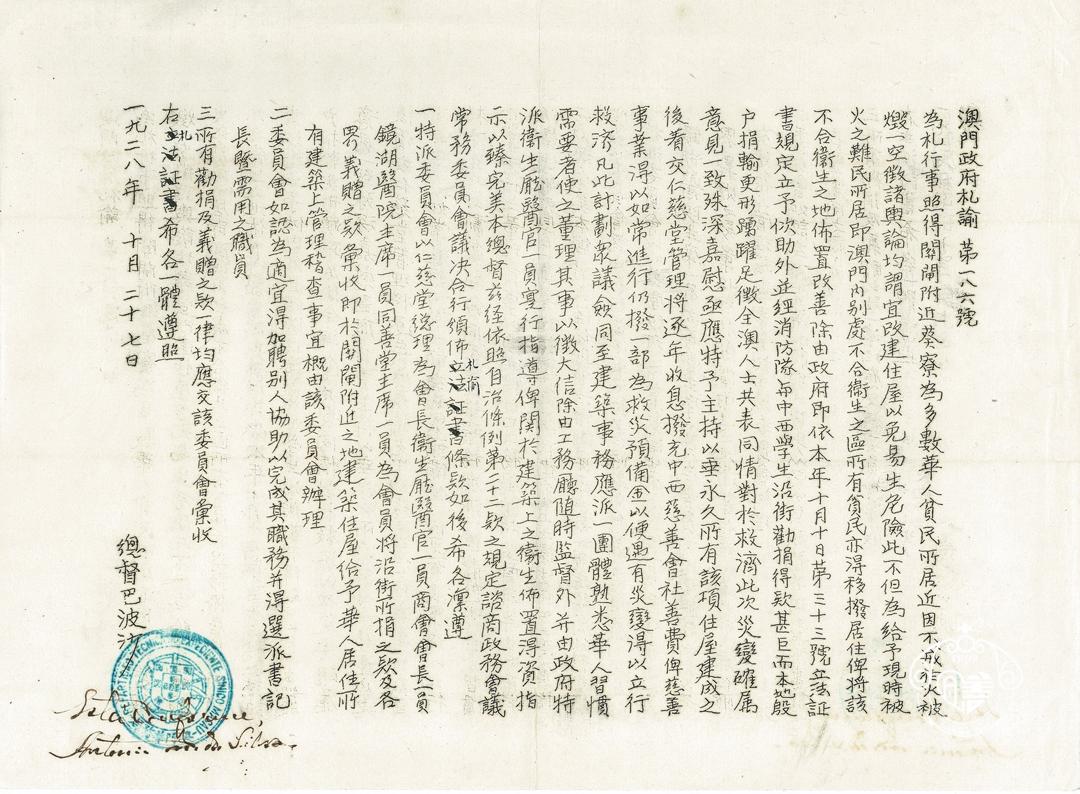 澳門政府札諭 第一八六號
為札行事照得關閘附近葵寮為多數華人貧民所居近因不戒於火被
燬一空徵諸輿論均謂宜改建住屋以免易生危險此不但為給予現時被
火之難民所居即澳門內別處不合衛生之區所有貧民亦得移撥居住俾將該
不合衛生之地佈置改善除由政府即依本年十月十日第三十三號立法証
書規定立予佽助外並經消防隊每中西學生沿街勸捐得欵甚巨而本地殷
户捐輸更形踴躍足徵全澳人士共表同情對於救濟此次災變確属
意見一致殊深嘉慰亟應特予主持以垂永久所有該項住屋建成之
後着交仁慈堂管理將逐年收息撥充中西慈善會社善費俾慈善
事業得以如常進行仍撥一部為救災預備金以便遇有災變得以立行
救济凡此計劃衆議僉同至建築事務應派一團體熟悉華人習慣
需要者使之董理其事以徵大信除由工務廳随時監督外并由政府特
派衛生廳醫官一員寔行指導俾関於建築上之衛生佈置得資指
示以臻完美本總督茲经依照自治條例第二十二欵之規定諮商政務會議
常務委員會議决合行頒佈札諭條欵如後希各凛遵
一特派委員會以仁慈堂總理為會長衛生廳醫官一員商會會長一員
鏡湖醫院主席一員同善堂主席一員為會員將沿街所捐之欵及各
界義贈之欵彙收即於関閘附近之地建築住屋給予華人居住所
有建築上管理稽查事宜概由該委員會辦理
二委員會如認為適宜得加聘別人協助以完成其職務并得選派書記
長暨需用之職員
三所有勸捐及義贈之欵一律均應交該委員會彙收
右札希各體遵照
一九二八年 十月 二十七日
總督巴波沙
Está conforme,
Antonio da Silva.